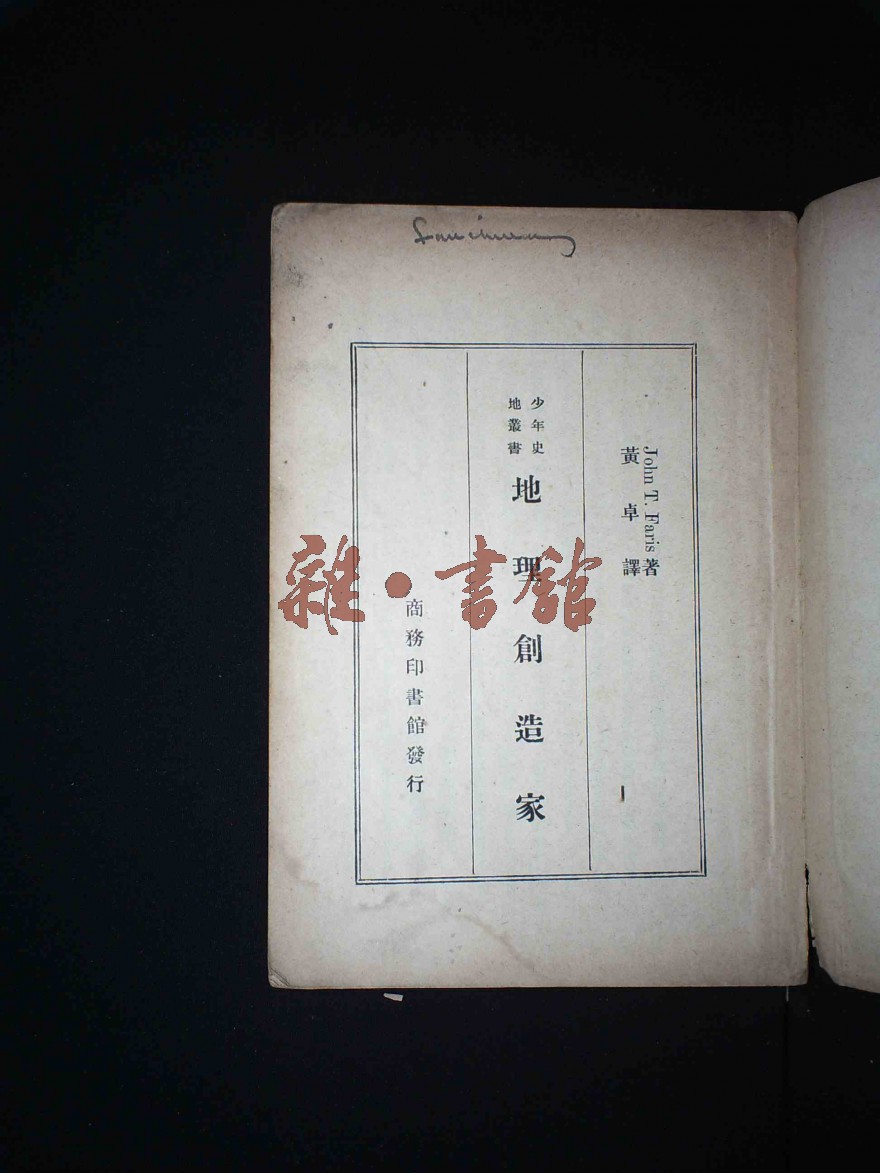 John T. Faris著
黃卓譯
少年史
地叢書
地理創造家
商務印書館發行
雜·書館